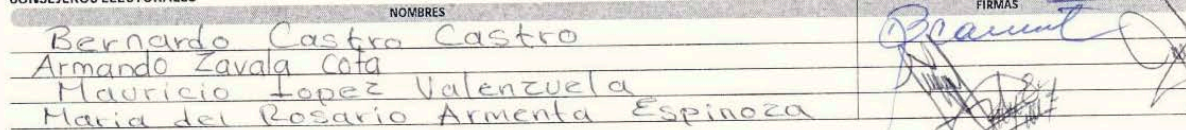 CONSEJEROS ELECTORALES
NOMBRES FIRMAS
Bernardo Castro Castro
Armando Zavala Cota
Mauricio Lopez Valenzuela
Maria del Rosario Armenta Espinoza